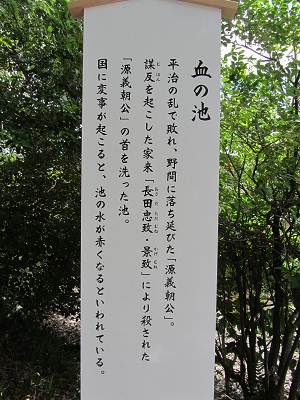 血の池
平治の乱で敗れ、野間に落ち延びた「源義朝公」。
謀反を起こした家来「長田忠致・景致」により殺された
「源義朝公」の首を洗った池。
国に変事が起こると、池の水が赤くなるといわれている。